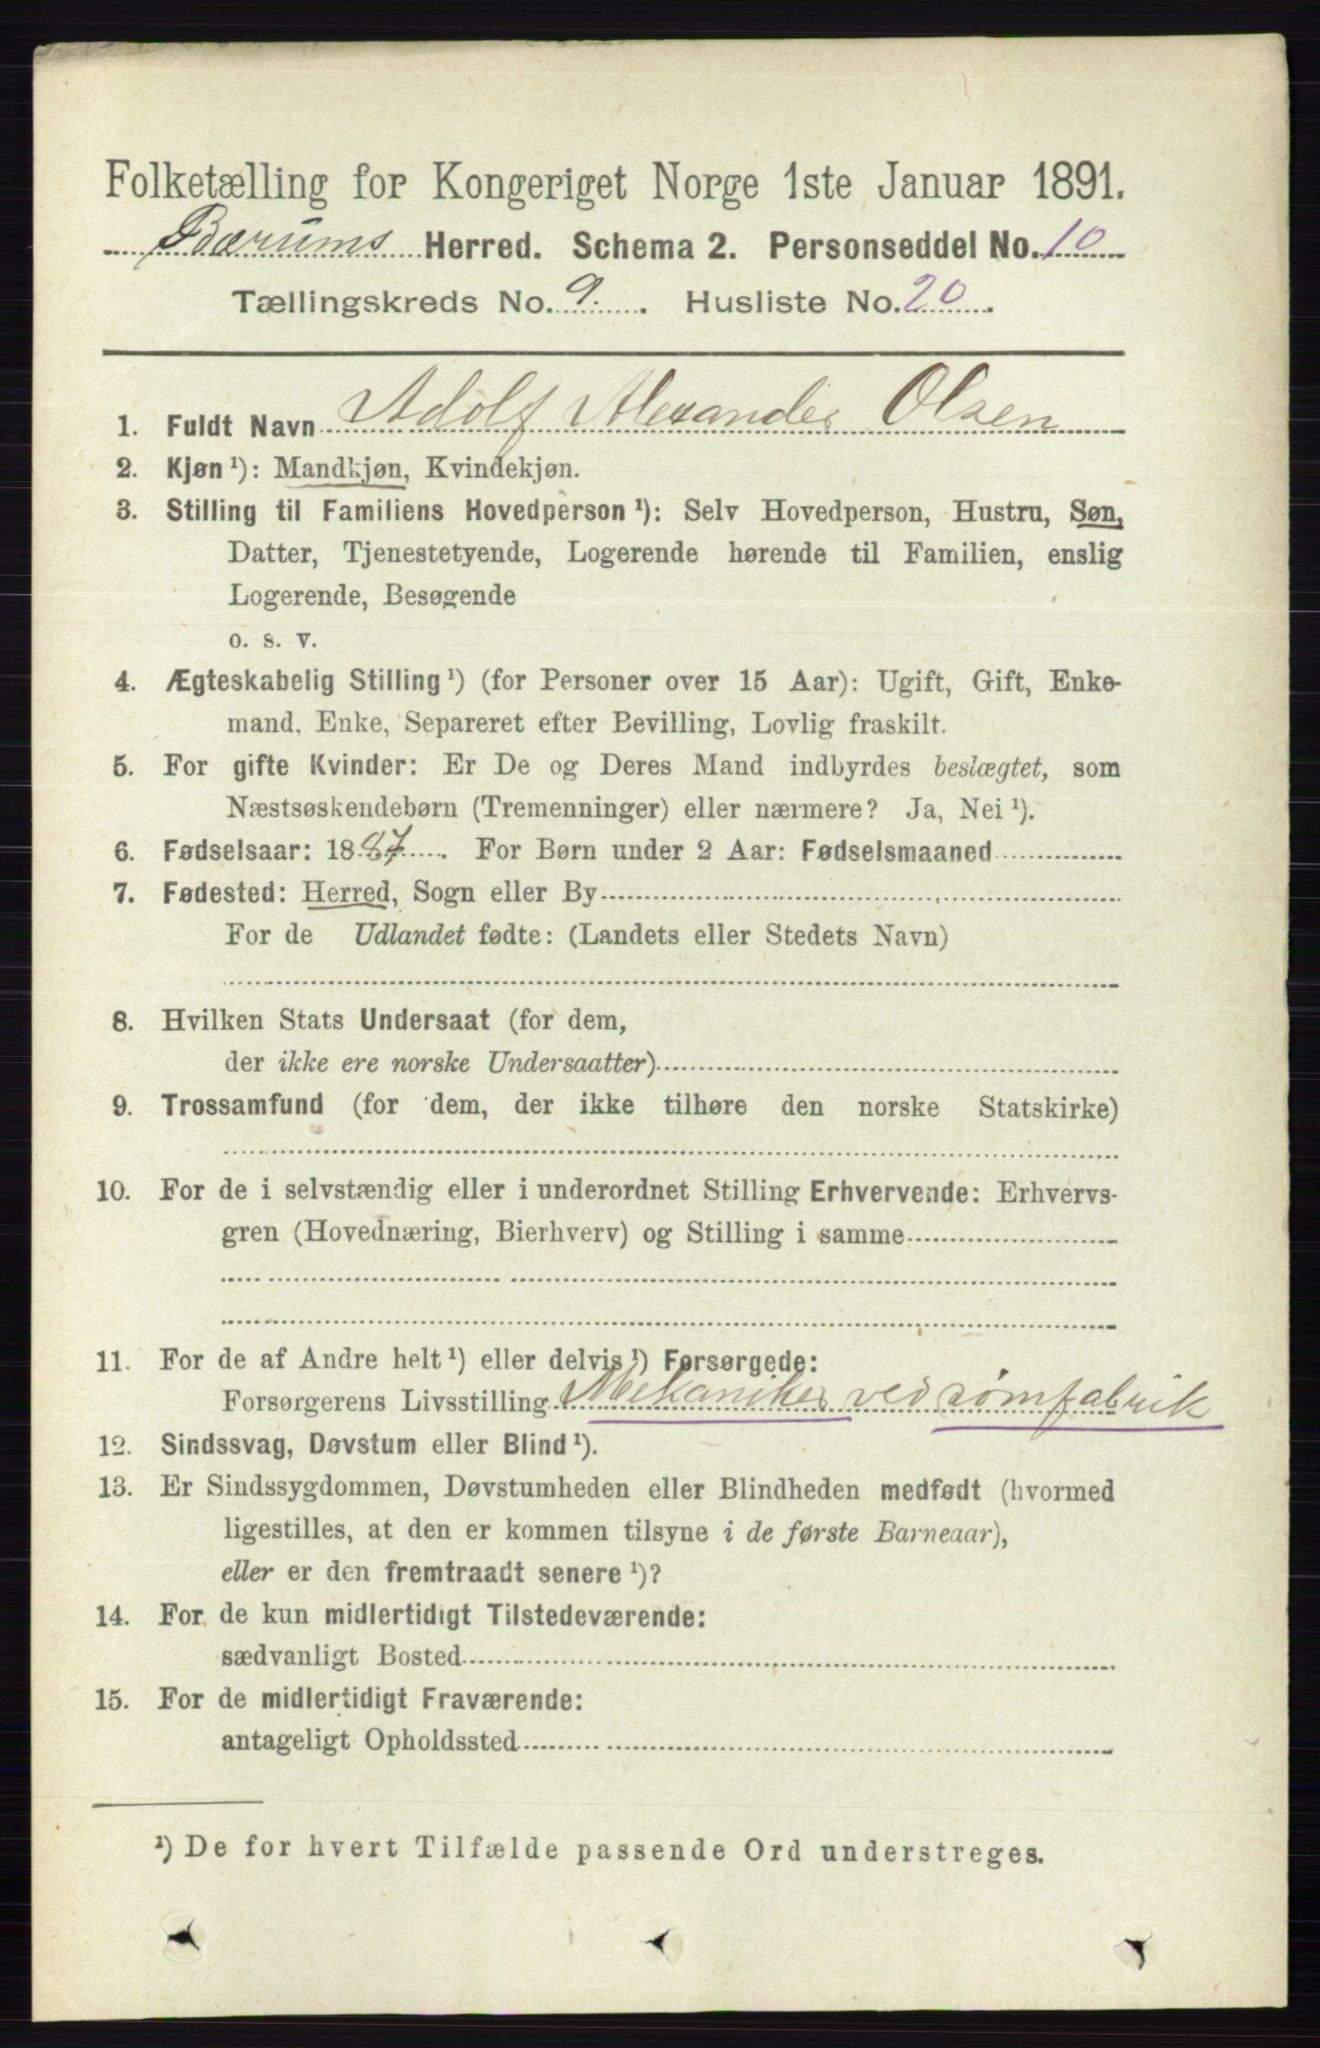 Folketælling for Kongeriget Norge 1ste Januar 1891.
Bærums Herred. Schema 2. Personseddel No. 10
Tællingskreds No. 9. Husliste No. 20.
1. Fuldt Navn Adolf Alexander Olsen
2. Kjøn ¹): Mandkjøn, Kvindekjøn.
3. Stilling til Familiens Hovedperson ¹): Selv Hovedperson, Hustru, Søn,
Datter, Tjenestetyende, Logerende hørende til Familien, enslig
Logerende, Besøgende
o. s. v.
4. Ægteskabelig Stilling ¹) (for Personer over 15 Aar): Ugift, Gift, Enke-
mand, Enke, Separeret efter Bevilling, Lovlig fraskilt.
5. For gifte Kvinder: Er De og Deres Mand indbyrdes beslægtet, som
Næstsøskendebørn (Tremenninger) eller nærmere? Ja, Nei ¹).
6. Fødselsaar: 1887. For Børn under 2 Aar: Fødselsmaaned
7. Fødested: Herred, Sogn eller By
For de Udlandet fødte: (Landets eller Stedets Navn)
8. Hvilken Stats Undersaat (for dem,
der ikke ere norske Undersaatter)
9. Trossamfund (for dem, der ikke tilhøre den norske Statskirke)
10. For de i selvstændig eller i underordnet Stilling Erhvervende: Erhvervs-
gren (Hovednæring, Bierhverv) og Stilling i samme
11. For de af Andre helt ¹) eller delvis ¹) Forsørgede:
Forsørgerens Livsstilling Mekaniker ved sømfabrik
12. Sindssvag, Døvstum eller Blind ¹).
13. Er Sindssygdommen, Døvstumheden eller Blindheden medfødt (hvormed
ligestilles, at den er kommen tilsyne i de første Barneaar),
eller er den fremtraadt senere ¹)?
14. For de kun midlertidigt Tilstedeværende:
sædvanligt Bosted
15. For de midlertidigt Fraværende:
antageligt Opholdssted
¹) De for hvert Tilfælde passende Ord understreges.